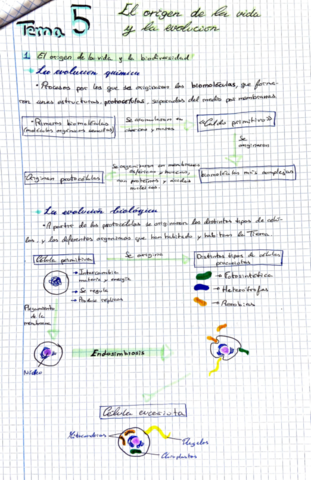 Tema 5
El origen de la vida
y la evolución
1. El origen de la vida y la biodiversidad
• La evolución química
• Proceso por los que se originaron las biomoléculas, que forma-
ron unas estructuras, protocélulas, separadas del medio por membranas
• Primeras biomoléculas
(moléculas orgánicas sencillas)
Se acumularon en
charcas y mares
"Caldo primitivo"
Se
originaron
Biomoléculas más complejas
Se organizaron en membranas
esféricas y huecas,
con proteínas y ácidos
nucleicos
Originan protocélulas
• La evolución biológica
• A partir de las protocélulas se originaron los distintos tipos de célu-
las, y los diferentes organismos que han habitado y habitan la Tierra.
Célula primitiva
Se origina
Distintos tipos de células
procariotas
→ Intercambia
materia y energía
→ Se regula
→ Produce réplicas
→ Fotosintética
→ Heterótrofas
→ Aerobias
Plegamiento
de la
membrana
Núcleo
Endosimbiosis
Célula eucariota
Mitocondrias
Flagelos
Cloroplastos